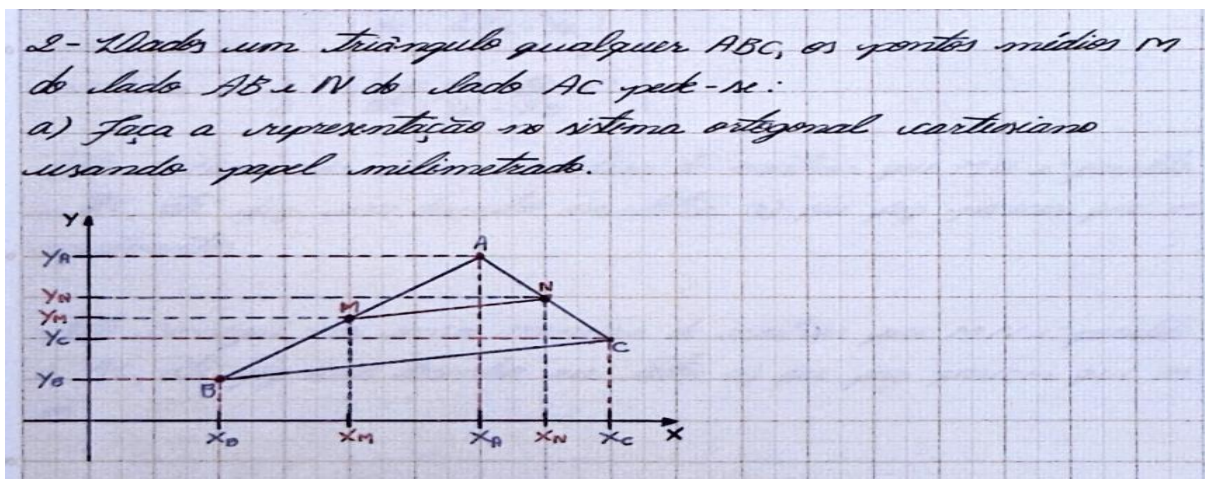 2 - Dados um triângulo qualquer ABC, os pontos médios M
do lado AB e N do lado AC pede-se:
a) Faça a representação no sistema ortogonal cartesiano
usando papel milimetrado.
Y
YA
A
YN
N
YM
M
YC
C
YB
B
XB
XM
XA
XN
XC
X